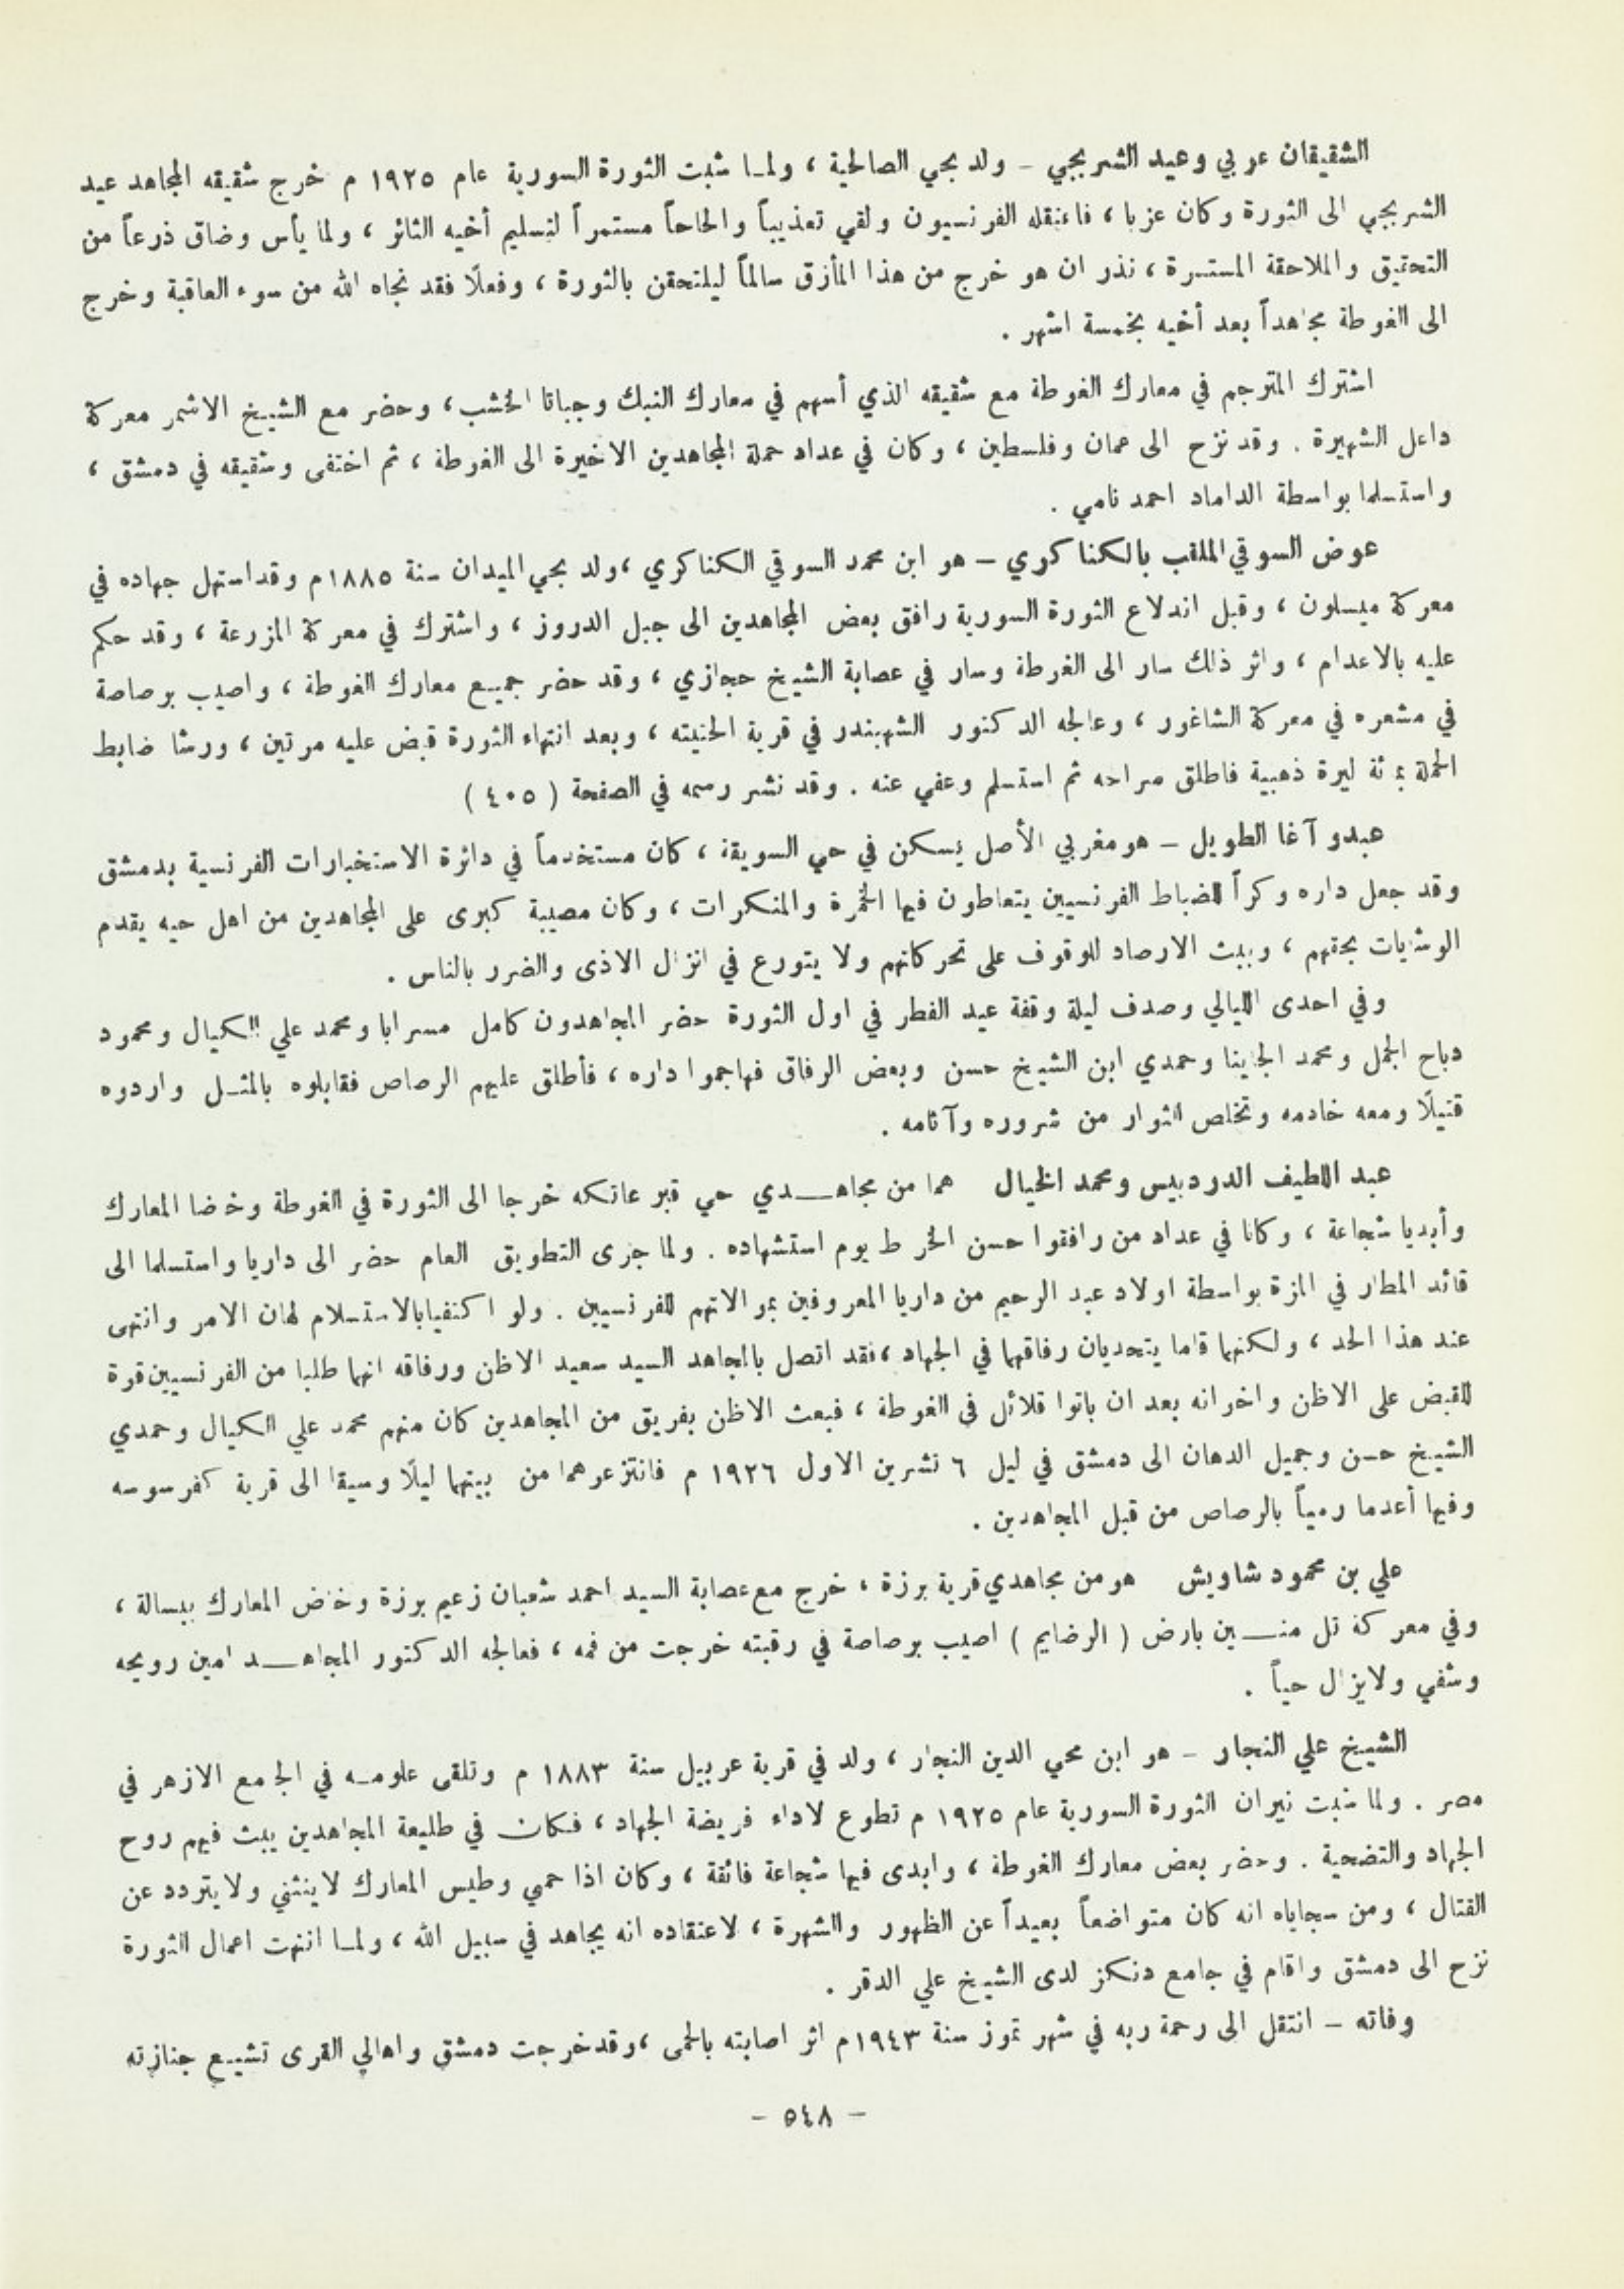 الشقيقان عربي وعيد الشربجي - ولد بحي الصالحية ، ولما شبت الثورة السورية عام ١٩٢٥ م خرج شقيقه المجاهد عيد
الشربجي الى الثورة وكان عزبا ، فاعتقله الفرنسيون ولقي تعذيباً والحاحاً مستمراً لتسليم أخيه الثائر ، ولما يأس وضاق ذرعاً من
التحقيق والملاحقة المستمرة ، نذر ان هو خرج من هذا المأزق سالماً ليلتحقن بالثورة ، وفعلًا فقد نجاه الله من سوء العاقبة وخرج
الى الغوطة مجاهداً بعد أخيه بخمسة اشهر .
اشترك المترجم في معارك الغوطة مع شقيقه الذي أسهم في معارك النبك وجباتا الخشب ، وحضر مع الشيخ الاشمر معركة
داعل الشهيرة . وقد نزح الى عمان وفلسطين ، وكان في عداد حملة المجاهدين الاخيرة الى الغوطة ، ثم اختفى وشقيقه في دمشق ،
واستسلما بواسطة الداماد احمد نامي .
عوض السوقي الملقب بالكناكري - هو ابن محمد السوقي الكناكري ، ولد بحي الميدان سنة ١٨٨٥ م وقد استهل جهاده في
معركة ميسلون ، وقبل اندلاع الثورة السورية رافق بعض المجاهدين الى جبل الدروز ، واشترك في معركة المزرعة ، وقد حكم
عليه بالاعدام ، واثر ذلك سار الى الغوطة وسار في عصابة الشيخ حجازي ، وقد حضر جميع معارك الغوطة ، واصيب برصاصة
في مشعره في معركة الشاغور ، وعالجه الدكتور الشهبندر في قرية الحتيته ، وبعد انتهاء الثورة قبض عليه مرتين ، ورشا ضابط
الحملة بمئة ليرة ذهبية فاطلق سراحه ثم استسلم وعفي عنه . وقد نشر رسمه في الصفحة ( ٤٠٥ )
عبدو آغا الطويل - هو مغربي الأصل يسكن في حي السويقة ، كان مستخدماً في دائرة الاستخبارات الفرنسية بدمشق
وقد جعل داره وكراً للضباط الفرنسيين يتعاطون فيها الخمرة والمنكرات ، وكان مصيبة كبرى على المجاهدين من اهل حيه يقدم
الوشايات بحقهم ، ويبث الارصاد للوقوف على تحركاتهم ولا يتورع في انزال الاذى والضرر بالناس .
وفي احدى الليالي وصدف ليلة وقفة عيد الفطر في اول الثورة حضر المجاهدون كامل مسرابا ومحمد علي الكيال ومحمود
دباح الجمل ومحمد الجاينا وحمدي ابن الشيخ حسن وبعض الرفاق فهاجموا داره ، فأطلق عليهم الرصاص فقابلوه بالمثل واردوه
قتيلًا ومعه خادمه وتخلص الثوار من شروره وآثامه .
عبد اللطيف الدردبيس ومحمد الخيال هما من مجاهدي حي قبر عاتكه خرجا الى الثورة في الغوطة وخاضا المعارك
وأبديا شجاعة ، وكانا في عداد من رافقوا حسن الخراط يوم استشهاده . ولما جرى التطويق العام حضر الى داريا واستسلما الى
قائد المطار في المزة بواسطة اولاد عبد الرحيم من داريا المعروفين بموالاتهم للفرنسيين . ولو اكتفيا بالاستسلام لهان الامر وانتهى
عند هذا الحد ، ولكنهما قاما يتحديان رفاقهما في الجهاد ، فقد اتصل بالمجاهد السيد سعيد الاظن ورفاقه انهما طلبا من الفرنسيين قوة
للقبض على الاظن واخوانه بعد ان باتوا قلائل في الغوطة ، فبعث الاظن بفريق من المجاهدين كان منهم محمد علي الكيال وحمدي
الشيخ حسن وجميل الدهان الى دمشق في ليل ٦ تشرين الاول ١٩٢٦ م فانتزعوهما من بيتهما ليلًا وسيقا الى قرية كفرسوسه
وفيها أعدما رمياً بالرصاص من قبل المجاهدين .
علي بن محمود شاويش هو من مجاهدي قرية برزة ، خرج مع عصابة السيد احمد شعبان زعيم برزة وخاض المعارك ببسالة ،
وفي معركة تل منين بارض ( الرضايم ) اصيب برصاصة في رقبته خرجت من فمه ، فعالجه الدكتور المجاهد امين رويحه
وشفي ولا يزال حياً .
الشيخ علي النجار - هو ابن محي الدين النجار ، ولد في قرية عربيل سنة ١٨٨٣ م وتلقى علومه في الجامع الازهر في
مصر . ولما شبت نيران الثورة السورية عام ١٩٢٥ م تطوع لاداء فريضة الجهاد ، فكان في طليعة المجاهدين يبث فيهم روح
الجهاد والتضحية . وحضر بعض معارك الغوطة ، وابدى فيها شجاعة فائقة ، وكان اذا حمي وطيس المعارك لا ينثني ولا يتردد عن
القتال ، ومن سجاياه انه كان متواضعاً بعيداً عن الظهور والشهرة ، لاعتقاده انه يجاهد في سبيل الله ، ولما انتهت اعمال الثورة
نزح الى دمشق واقام في جامع دنكز لدى الشيخ علي الدقر .
وفاته - انتقل الى رحمة ربه في شهر تموز سنة ١٩٤٣ م اثر اصابته بالحمى ، وقد خرجت دمشق واهالي القرى تشييع جنازته
- ٥٤٨ -